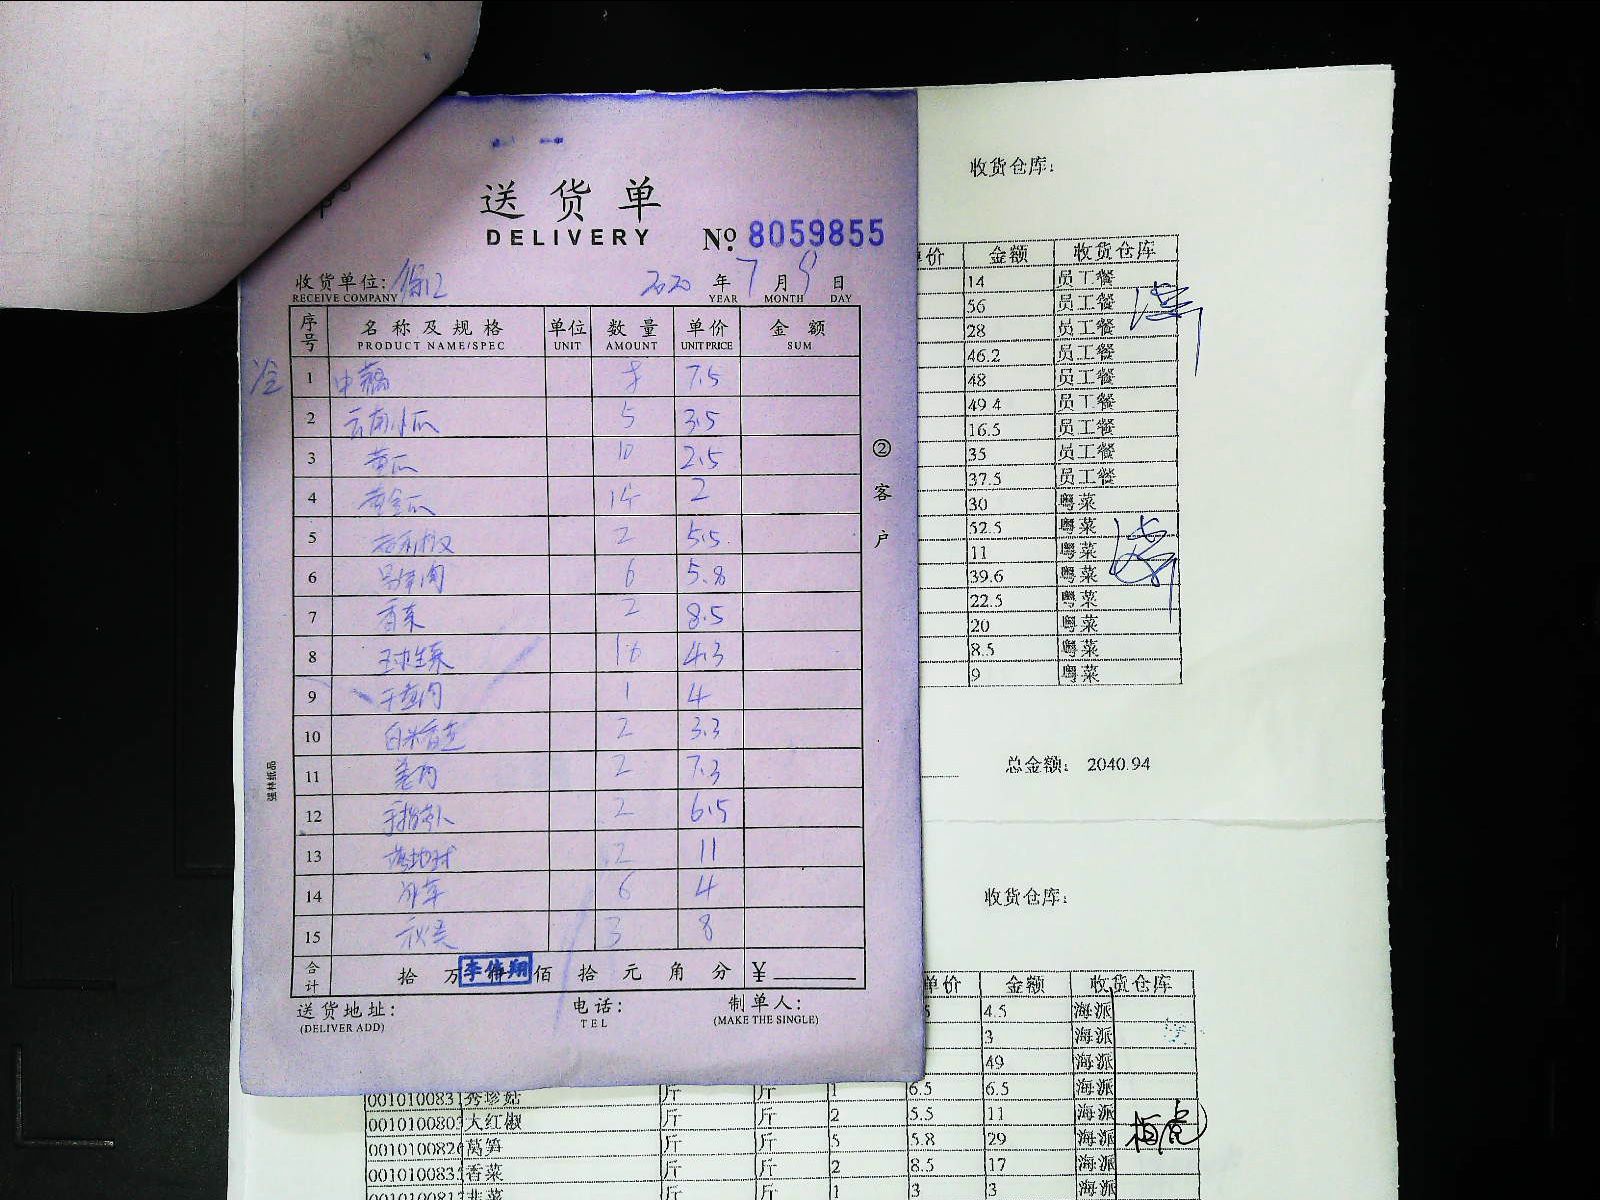 送货单
DELIVERY
No 8059855
收货单位:
RECEIVE COMPANY
2020 年 7 月 9 日
YEAR MONTH DAY
序号 名称及规格 单位 数量 单价 金额
PRODUCT NAME/SPEC UNIT AMOUNT UNIT PRICE SUM
1 7.5
2 云南小瓜 5 3.5
3 黄瓜 10 2.5
4 黄金瓜 14 2
5 2 5.5
6 6 5.8
7 香菜 2 8.5
8 生菜 4.3
9 1 4
10 2 3.3
11 姜肉 2 7.3
12 2 6.5
13 2 11
14 6 4
15 秋葵 3 8
合计 拾 万 李伟翔 佰 拾 元 角 分 ¥
送货地址: 电话: 制单人:
(DELIVER ADD) TEL (MAKE THE SINGLE)
② 客户
强林纸品
收货仓库:
价 金额 收货仓库
14 员工餐
56 员工餐
28 员工餐
46.2 员工餐
48 员工餐
49.4 员工餐
16.5 员工餐
35 员工餐
37.5 员工餐
30 粤菜
52.5 粤菜
11 粤菜
39.6 粤菜
22.5 粤菜
20 粤菜
8.5 粤菜
9 粤菜
总金额: 2040.94
收货仓库:
单价 金额 收货仓库
5 4.5 海派
3 海派
49 海派
001010083 秀珍菇 斤 斤 1 6.5 6.5 海派
001010080 大红椒 斤 斤 2 5.5 11 海派
001010082 莴笋 斤 斤 5 5.8 29 海派
001010083 香菜 斤 斤 2 8.5 17 海派
001010081 韭菜 斤 斤 1 3 3 海派